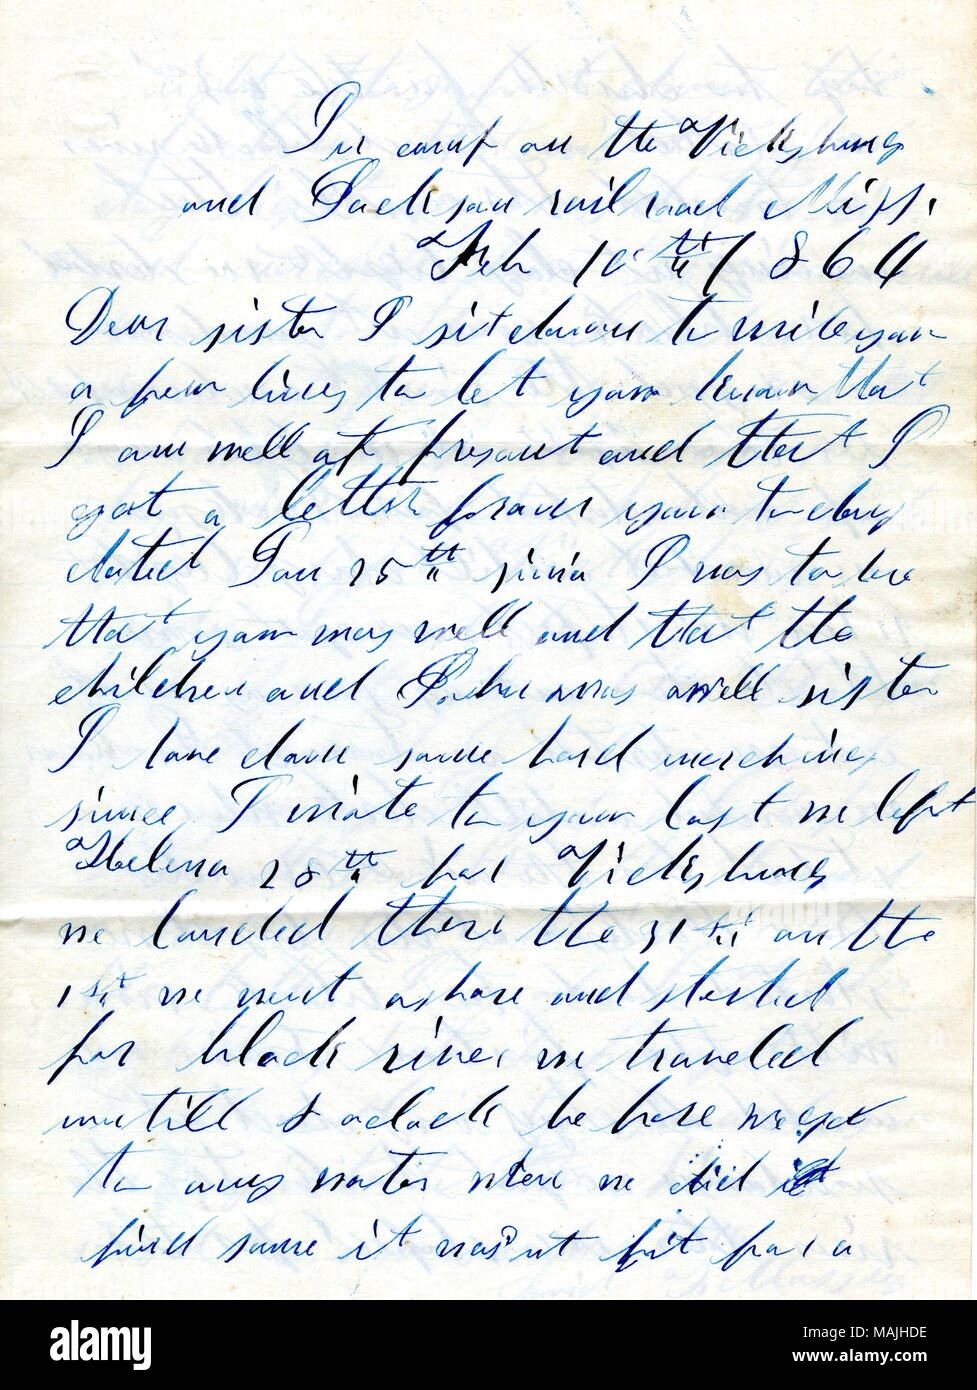 In camp on the Vicksburg
and Jackson railroad Miss.
Feb 10th 1864
Dear sister I sit down to write you
a few lines to let you know that
I am well at presant and that I
got a letter from you to day
dated Jan 25th I was to
that you was well and that the
children and John was well sister
I have don some hard marching
since I wrote to you last we left
Helena 28th for Vicksburg
we landed there the 31th on the
1st we went ashore and started
for black river we traveled
untill 8 oclock be fore we got
to any water when we did
find some it was'nt fit for a
alamy
Image ID: MAJHDE
www.alamy.com